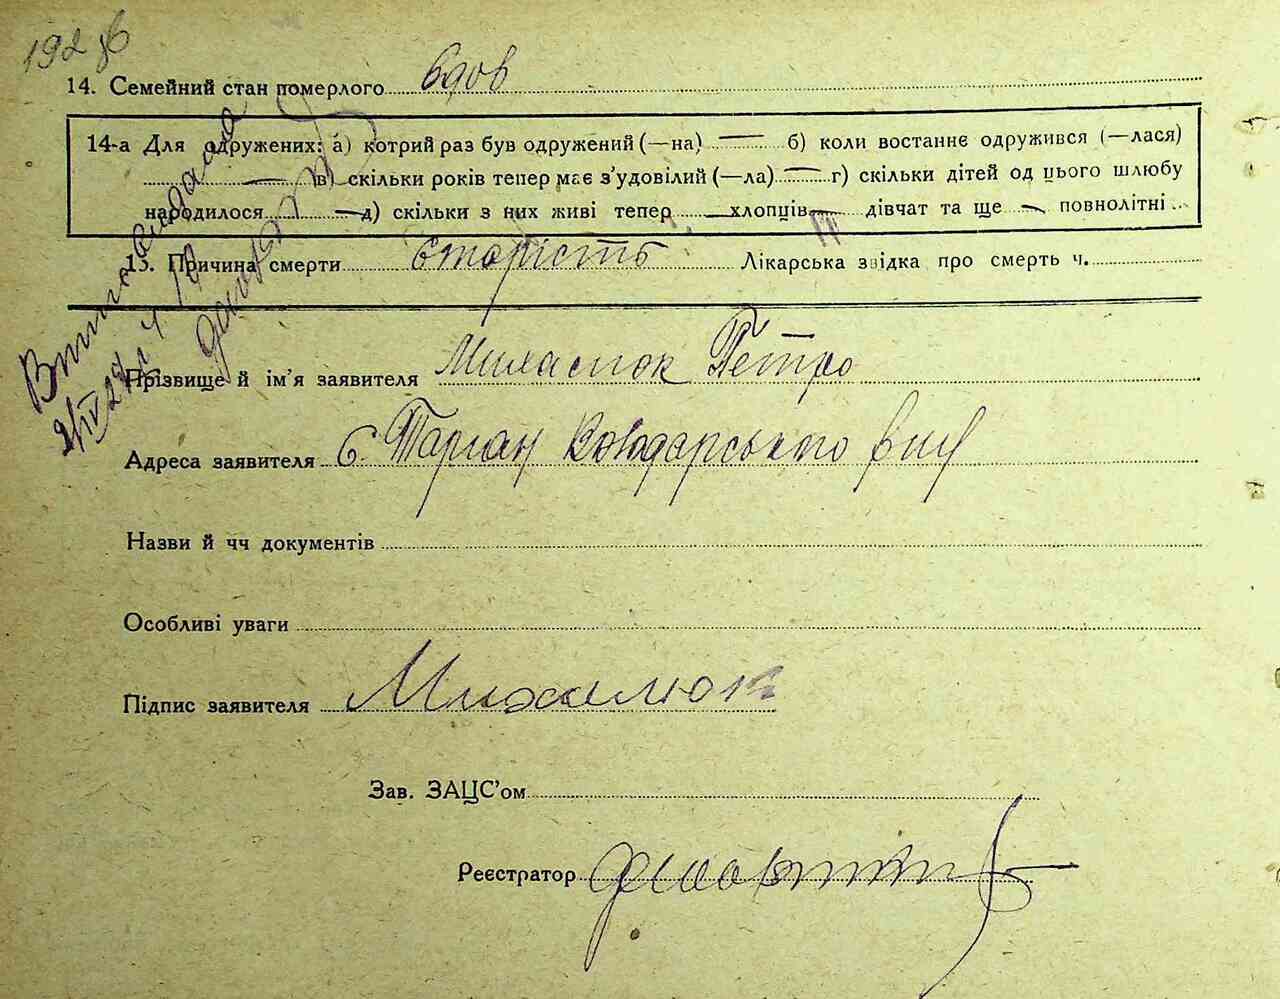 192
14. Семейний стан померлого вдов
14-а Для одружених: а) котрий раз був одружений (—на) — б) коли востаннє одружився (—лася)
— в) скільки років тепер має з'удовілий (—ла) — г) скільки дітей од цього шлюбу
народилося — д) скільки з них живі тепер — хлопців — дівчат та ще — повнолітні
15. Причина смерти старість Лікарська звідка про смерть ч.
Прізвище й ім'я заявителя Михалюк Петро
Адреса заявителя с. Тарган Володарського
Назви й чч документів
Особливі уваги
Підпис заявителя Михалюк
Зав. ЗАЦС'ом
Реєстратор